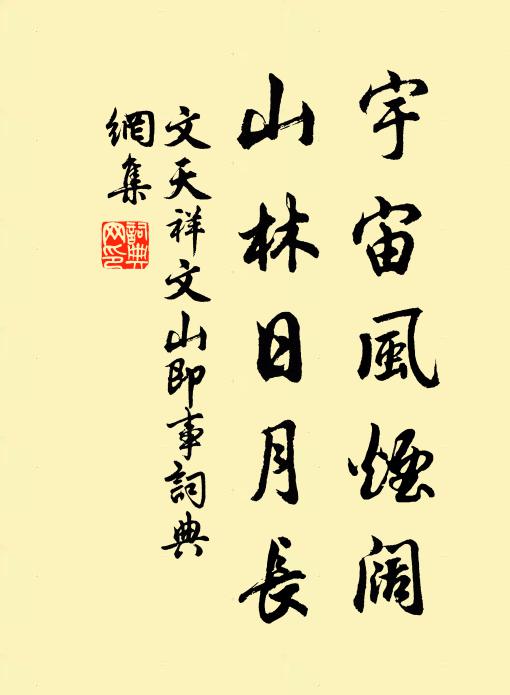 宇宙風煙阔
山林日月長
文天祥文山即事詞典
網集
詞典
网印